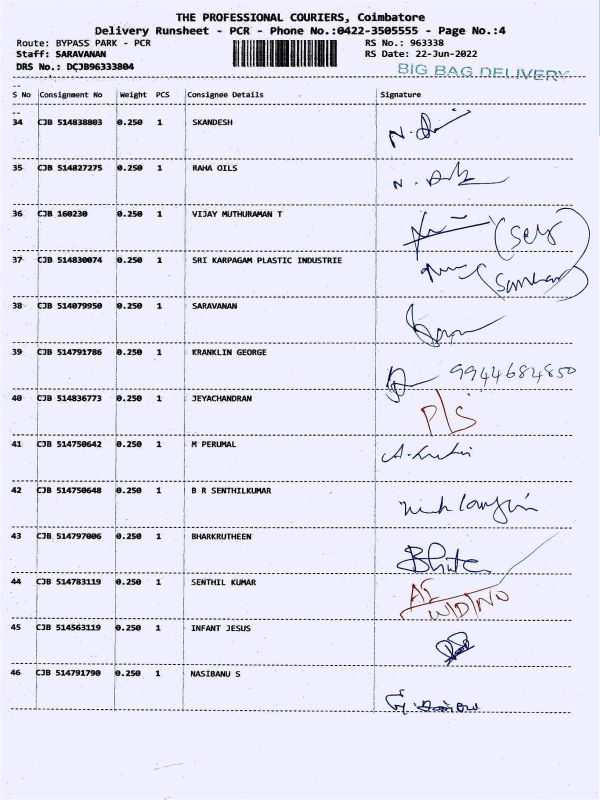 THE PROFESSIONAL COURIERS, Coimbatore
Delivery Runsheet - PCR - Phone No.:0422-3505555 - Page No.:4
Route: BYPASS PARK - PCR RS No.: 963338
Staff: SARAVANAN RS Date: 22-Jun-2022
DRS No.: DCJB96333804
BIG BAG DELIVERY
S No Consignment No Weight PCS Consignee Details Signature
34 CJB 514838803 0.250 1 SKANDESH
35 CJB 514827275 0.250 1 RAHA OILS
36 CJB 160230 0.250 1 VIJAY MUTHURAMAN T
37 CJB 514830074 0.250 1 SRI KARPAGAM PLASTIC INDUSTRIE
38 CJB 514079950 0.250 1 SARAVANAN
39 CJB 514791786 0.250 1 KRANKLIN GEORGE 9944684850
40 CJB 514836773 0.250 1 JEYACHANDRAN P/S
41 CJB 514750642 0.250 1 M PERUMAL
42 CJB 514750648 0.250 1 B R SENTHILKUMAR
43 CJB 514797006 0.250 1 BHARKRUTHEEN
44 CJB 514783119 0.250 1 SENTHIL KUMAR
45 CJB 514563119 0.250 1 INFANT JESUS
46 CJB 514791790 0.250 1 NASIBANU S